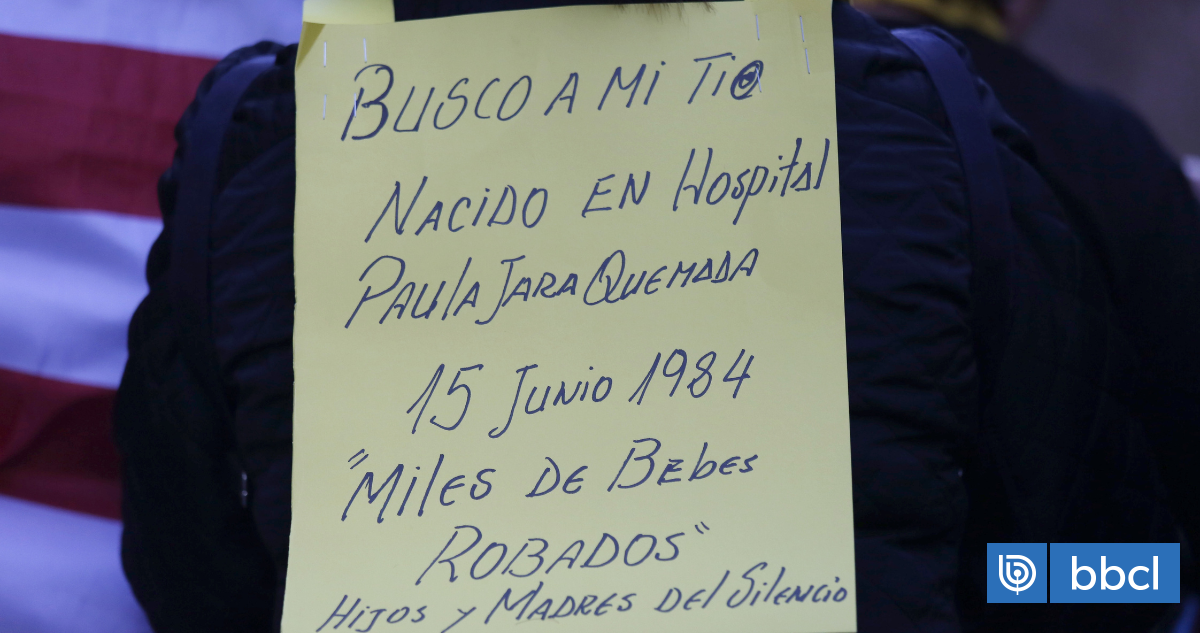 BUSCO A MI TIO
NACIDO EN Hospital
PAULA JARA QUEMADA
15 JUNIO 1984
"MILES DE BEBES
ROBADOS"
HIJOS Y MADRES DEL SILENCIO
bbcl